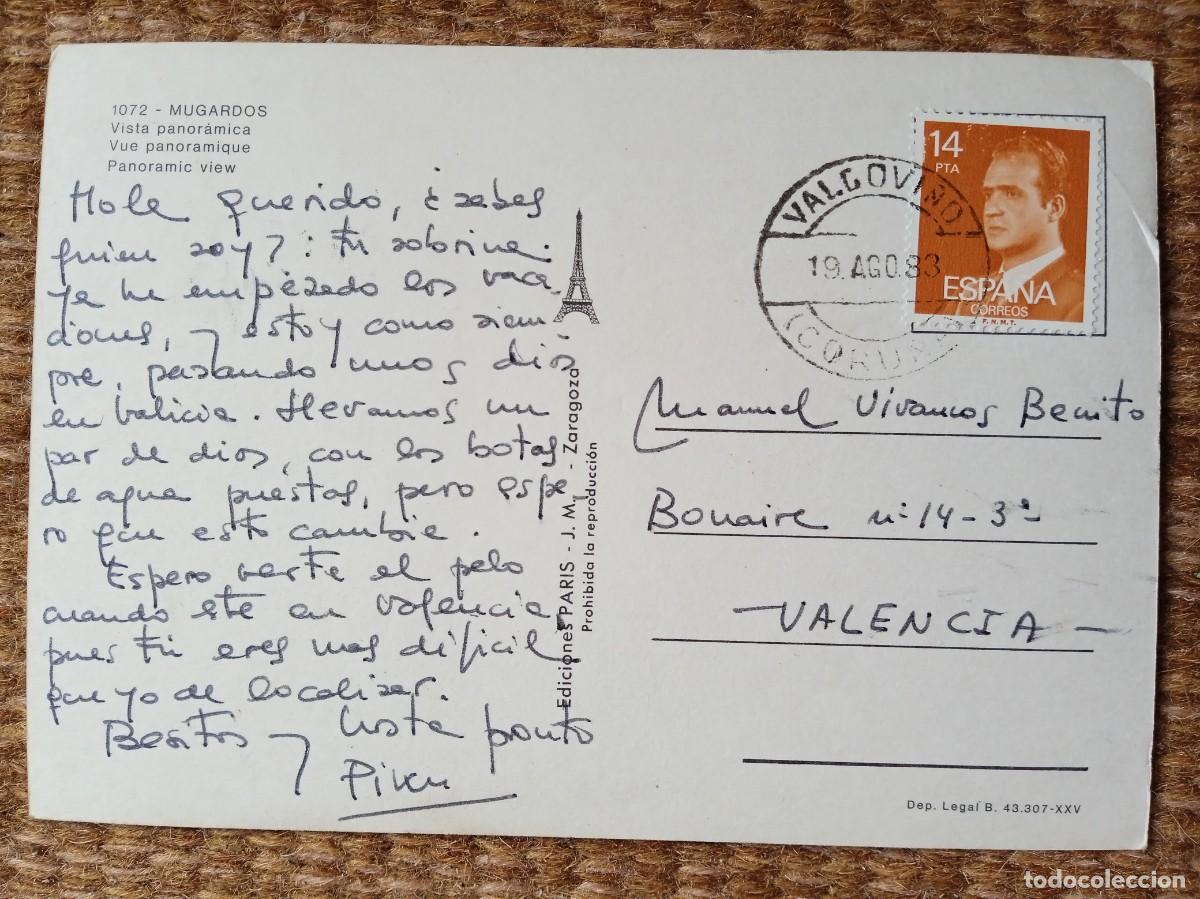 1072 - MUGARDOS
Vista panorámica
Vue panoramique
Panoramic view
Hola querido, ¿sabes
quien soy?: tu sobrina.
ya he empezado las vaca
ciones, y estoy como siem
pre, pasando unos dias
en Galicia. Llevamos un
par de dias, con las botas
de agua puestas, pero espe
ro que esto cambie.
Espero verte el pelo
cuando este en Valencia,
pues tu eres mas dificil
que yo de localizar.
Besitos y hasta pronto
Ediciones PARIS - J. M. - Zaragoza
Prohibida la reproducción
14
PTA
ESPAÑA
CORREOS
F.N.M.T.
VALGOVIÑO
19. AGO. 83
(CORUÑA)
Manuel Vivancos Benito
Bonaire nº 14 - 3ª
- VALENCIA -
Dep. Legal B. 43.307-XXV
todocoleccion